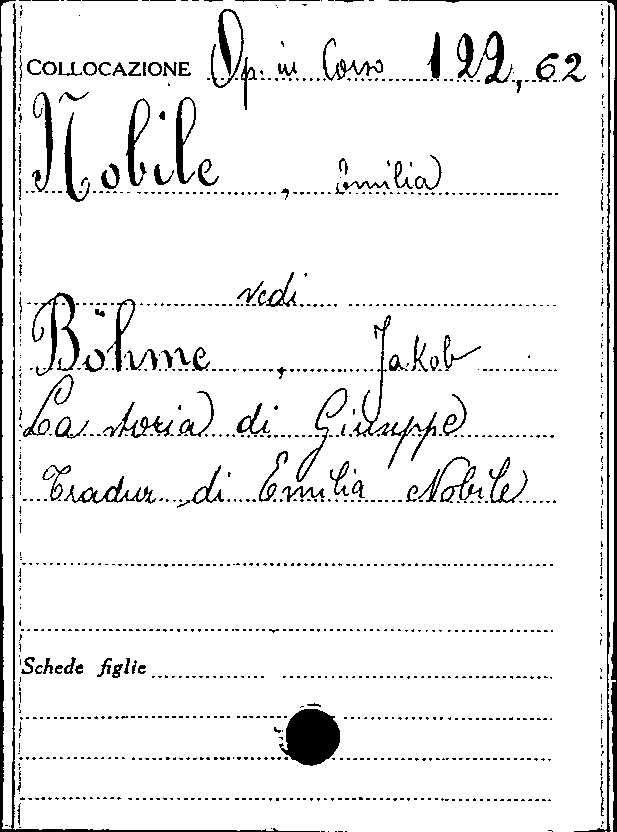 COLLOCAZIONE Op. in Corso 122, 62
Nobile, Emilia
vedi
Böhme, Jakob
La storia di Giuseppe
Tradur. di Emilia Nobile
Schede figlie